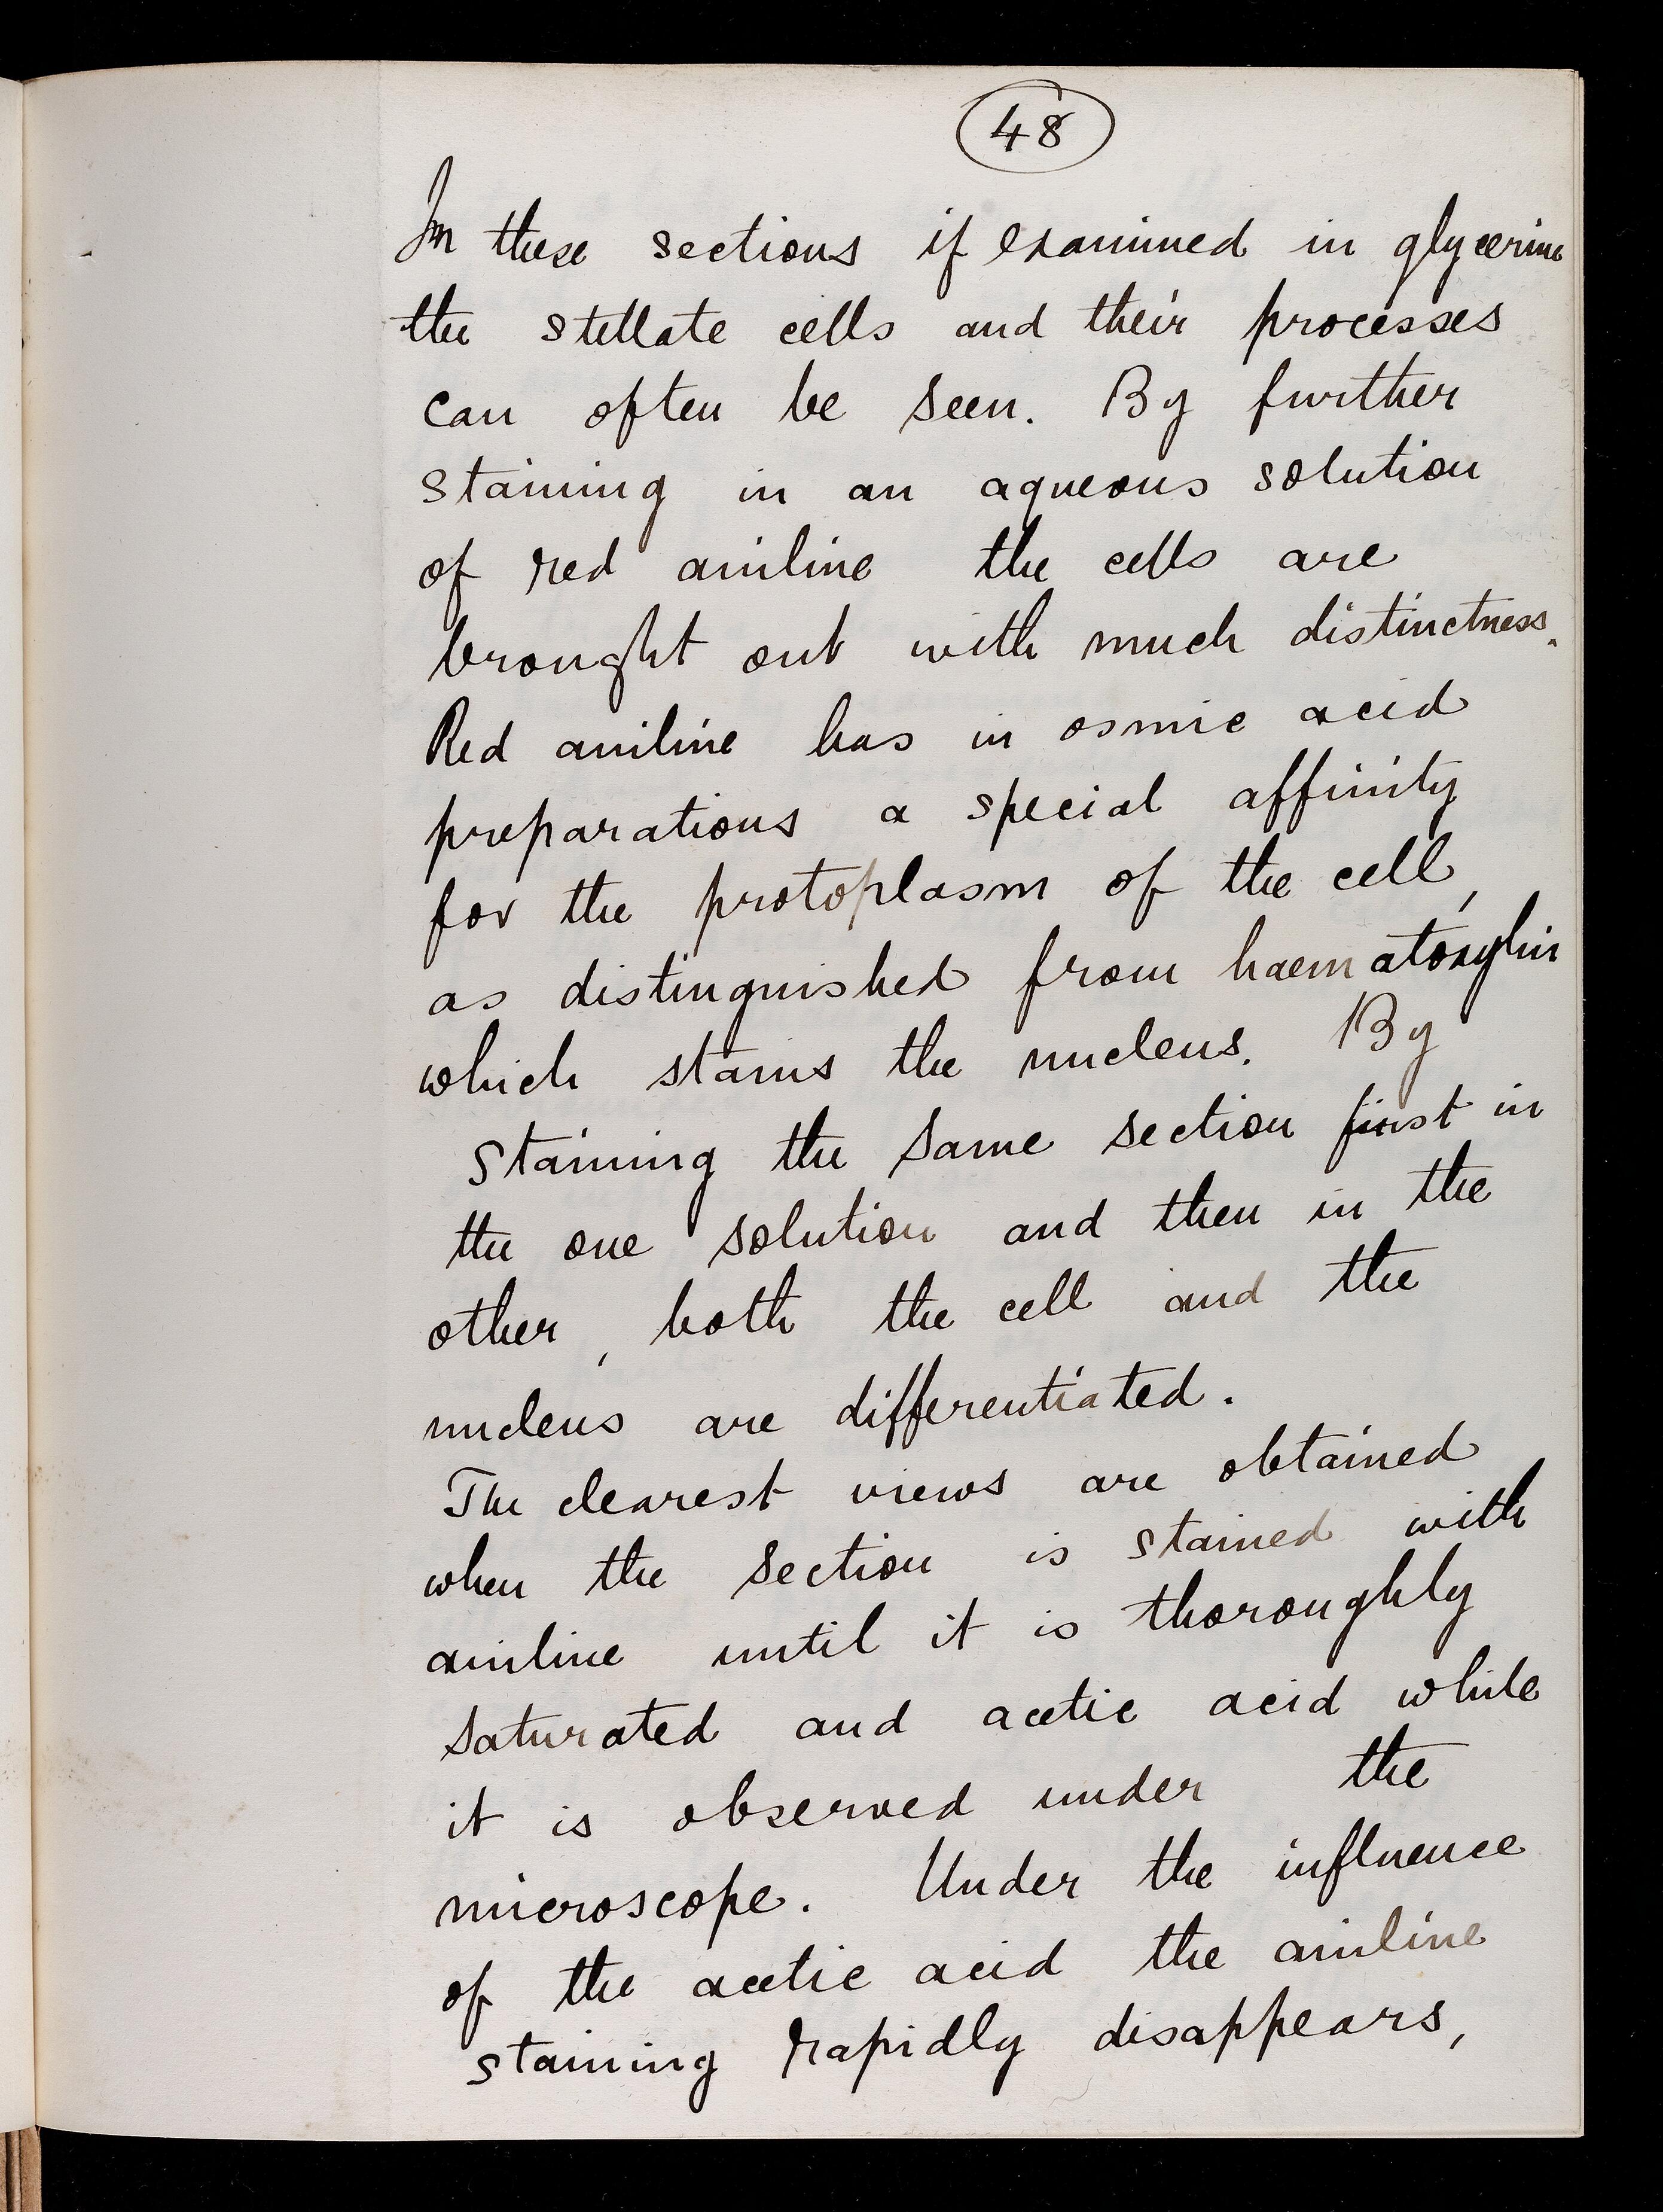 48
In these sections if examined in glycerine
the stellate cells and their processes
can often be seen. By further
staining in an aqueous solution
of red aniline the cells are
brought out with much distinctness.
Red aniline has in osmic acid
preparations a special affinity
for the protoplasm of the cell,
as distinguished from haematoxylin
which stains the nucleus. By
staining the same section first in
the one solution and then in the
other, both the cell and the
nucleus are differentiated.
The clearest views are obtained
when the section is stained with
aniline until it is thoroughly
saturated and acetic acid while
it is observed under the
microscope. Under the influence
of the acetic acid the aniline
staining rapidly disappears,